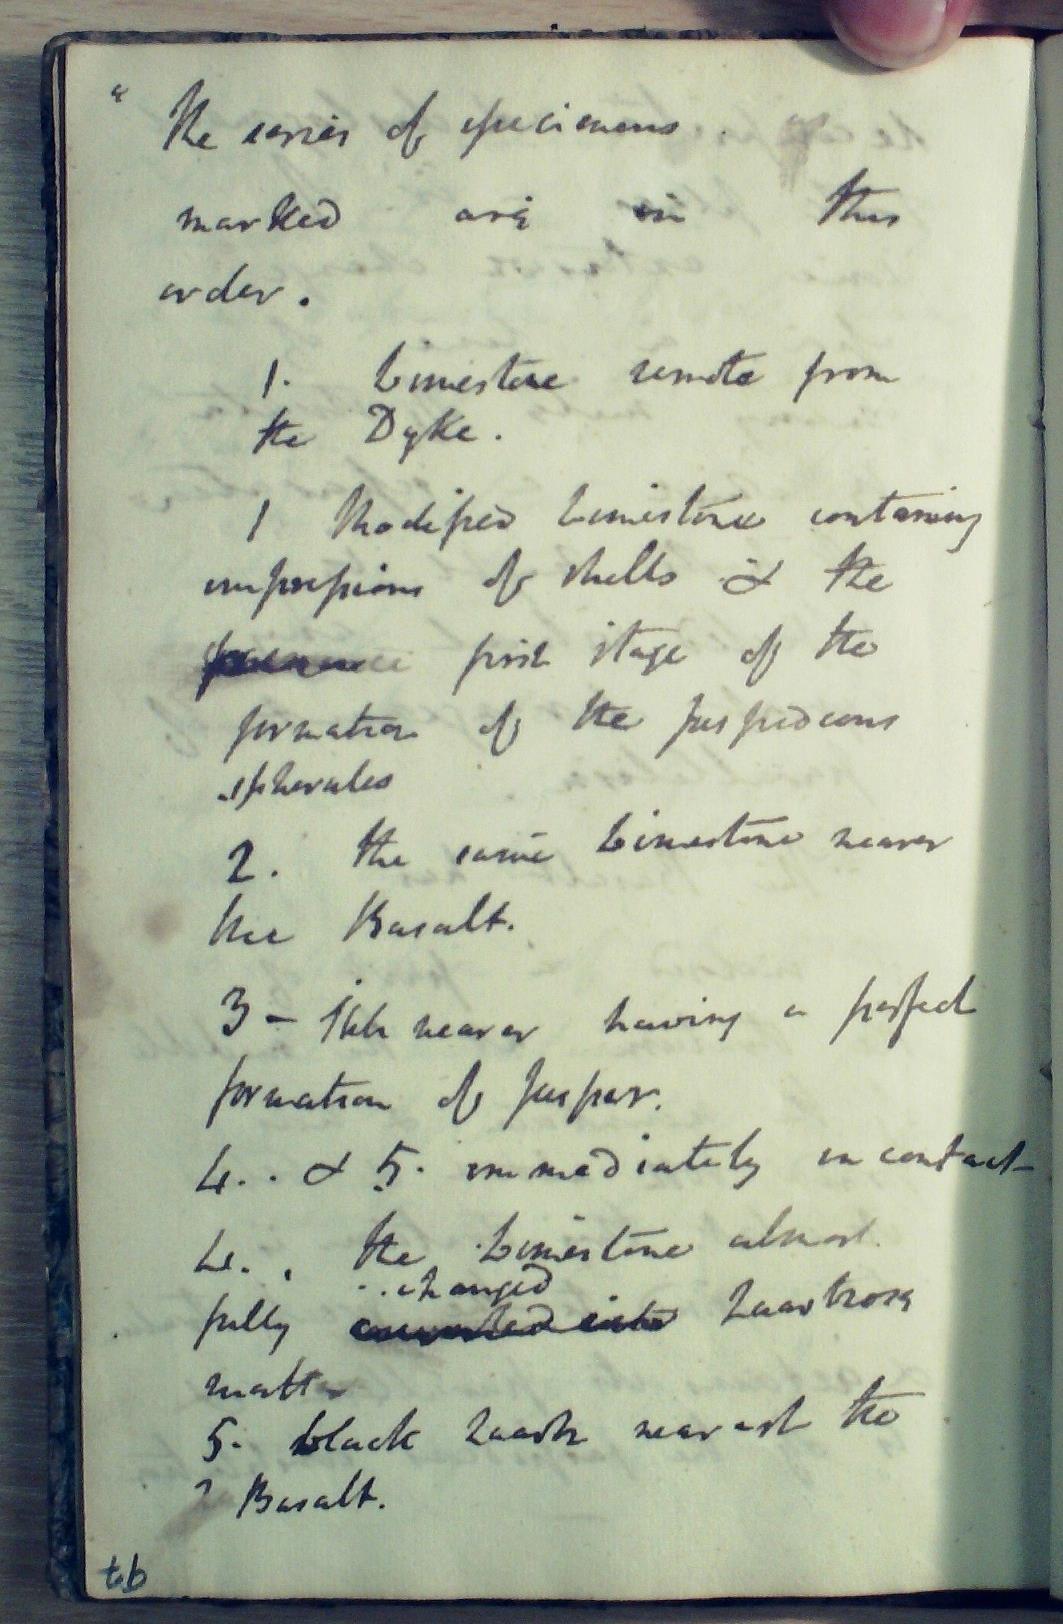 a The series of specimens.
marked are in this
order.
1. Limestone remote from
the Dyke.
1 Modified Limestone containing
impressions of shells & the
first stage of the
formation of the Jaspideous
spherules
2. the same Limestone nearer
the Basalt.
3 - Still nearer having a perfect
formation of Jasper.
4.. & 5. immediately in contact
4.. the Limestone almost
changed
fully converted into quartzose
matter
5. black quartz nearest the
? Basalt.